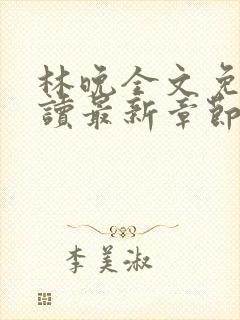 林晚全文免
讀最新章節
李美淑